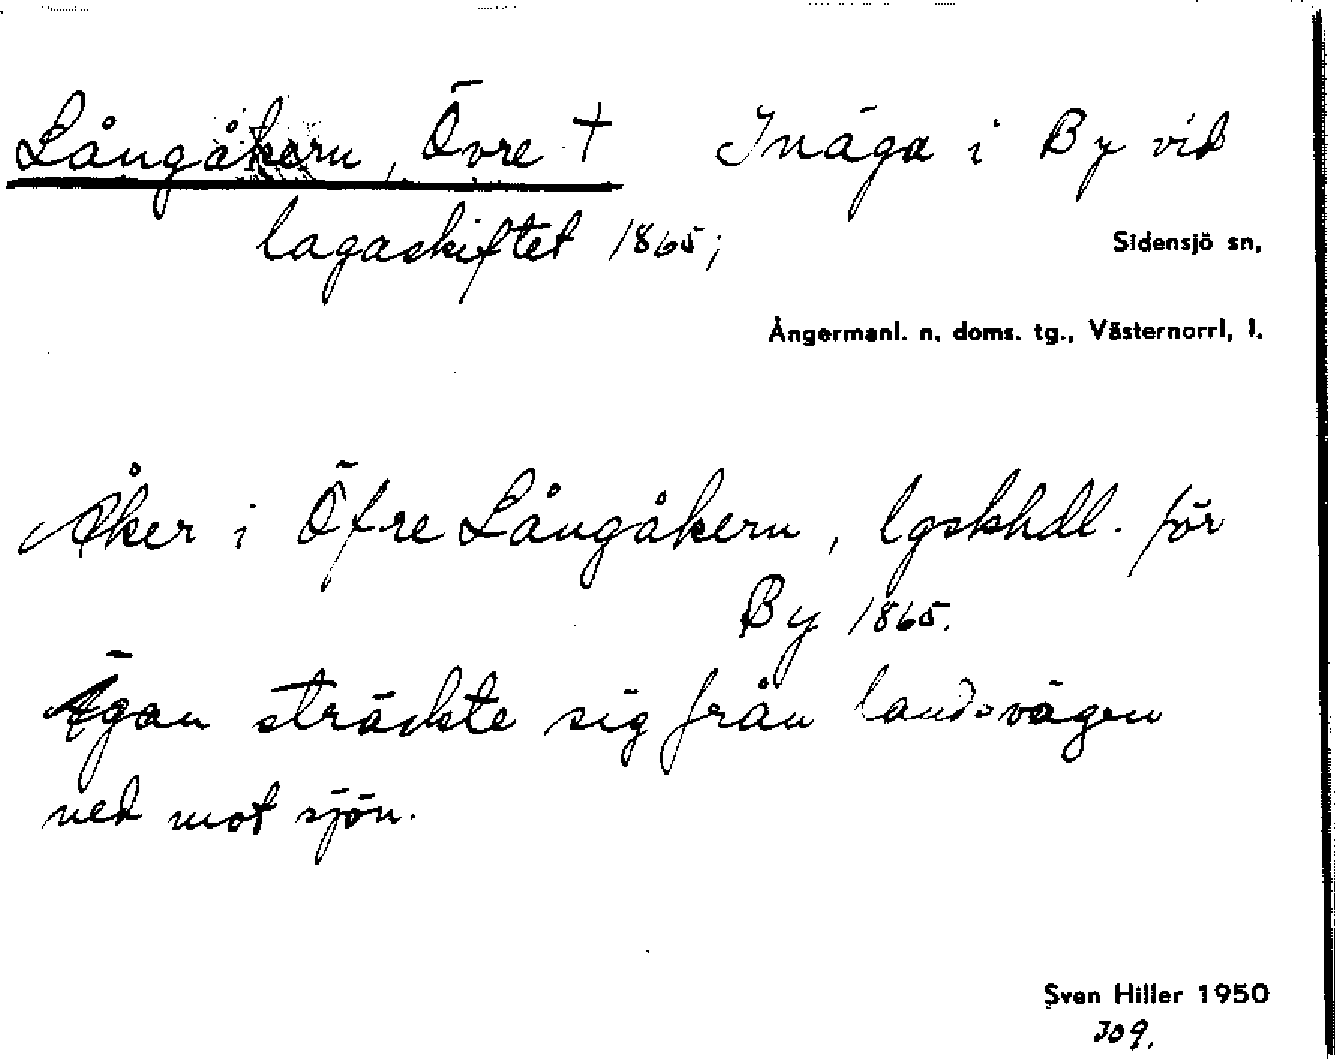 Långåkern, Övre † Inäga i By vid
lagaskiftet 1865;
Sidensjö sn,
Ångermanl. n. doms. tg., Västernorrl, l.
Åker i Öfre Långåkern, lgskhdl. för
By 1865.
Ägan sträckte sig från landsvägen
ned mot sjön.
Sven Hiller 1950
309.